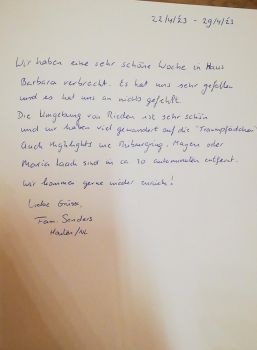 22/4/23 - 29/4/23
Wir haben eine sehr schöne Woche in Haus
Barbara verbracht. Es hat uns sehr gefallen
und es hat uns an nichts gefehlt.
Die Umgebung von Rieden ist sehr schön
und wir haben viel gewandert auf die "Traumpfadchen"
Auch Highlights wie Nürburgring, Mayen oder
Maria Laach sind in ca 30 autominuten entfernt.
Wir kommen gerne wieder zurück!
Liebe Grüsse,
Fam. Senders
/NL